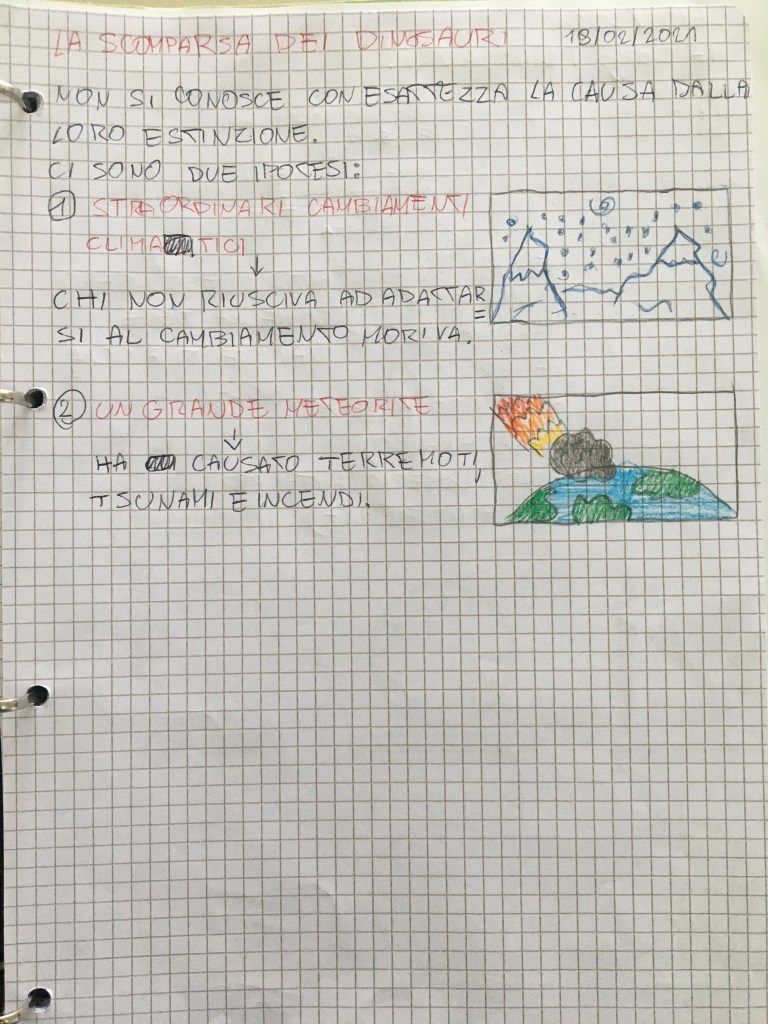 LA SCOMPARSA DEI DINOSAURI 18/02/2021
NON SI CONOSCE CON ESATTEZZA LA CAUSA DALLA
LORO ESTINZIONE.
CI SONO DUE IPOTESI:
1 STRAORDINARI CAMBIAMENTI
CLIMATICI
↓
CHI NON RIUSCIVA AD ADATTAR=
SI AL CAMBIAMENTO MORIVA.
2 UN GRANDE METEORITE
↓
HA CAUSATO TERREMOTI,
TSUNAMI E INCENDI.